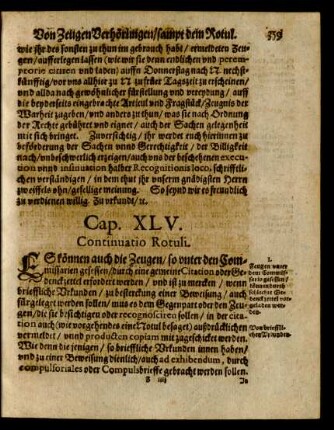 Von Zeugen Verhörungen / sampt dem Rotul. 359
wie jhr des sonsten zu thun im gebrauch habt / ermeldten Zeu-
gen / aufferlegen lassen (wie wir sie denn endlichen vnd peremp-
ptorie citiren vnd laden / auffn Donnerstag nach N. nechst-
künfftig / vor vns allhier zu N. zu früer Tagszeit zu erscheinen /
vnd allda nach gewöhnlicher fürstellung vnd vereydung / auff
die beyderseits eingebrachte Articul vnd Fragstück / Zeugnis der
Warheit zugeben / vnd anders zu thun / was sie nach Ordnung
der Rechte gebühret vnd eignet / auch der Sachen gelegenheit
mit sich bringet. Zuversichtig / jhr werdet euch hierinnen zu
beförderung der Sachen vnnd Gerechtigkeit / der Billigkeit
nach / vnbeschwerlich erzeigen / auch vns der beschehenen execu-
tion vnnd insinuation halber Recognitionis loco, schriffeli-
chen verständigen / in dem thut jhr vnserm gnädigsten Herrn
zweiffels ohn / gefellige meinung. So seynd wir es freundlich
zu verdienen willig. Zu vrkundt / ꝛc.
Cap. XLV.
Continuatio Rotuli.
ES können auch die Zeugen / so vnter den Com-
missarien gesessen / durch eine gemeine Citation oder Ge-
denckzettel erfordert werden / vnd ist zu mercken / wenn
brieffliche Vrkunden / zu bestetckung einer Beweisung / auch
fürgeleget werden sollen / muß es dem Gegenpart oder den Zeu-
gen / die sie besichtigen oder recognosciren sollen / in der cita-
tion auch (wie vorgehendes eine Notul besaget) außdrücklichen
vermeldet / vnnd producten copiam mit zugeschicket werden.
Wie denn die jenigen / so brieffliche Vrkunden innen haben /
vnd zu einer Beweisung dienlich / auch ad exhibendum, durch
compulsoriales oder Compulsbrieffe gebracht werden sollen.
1.
Zeugen vnter
dem Commissa-
rien gesessen /
können durch
schlechte Ge-
denckzettel vor-
geladen wer-
den.
Von brieffli-
chen Vrkunden.
In